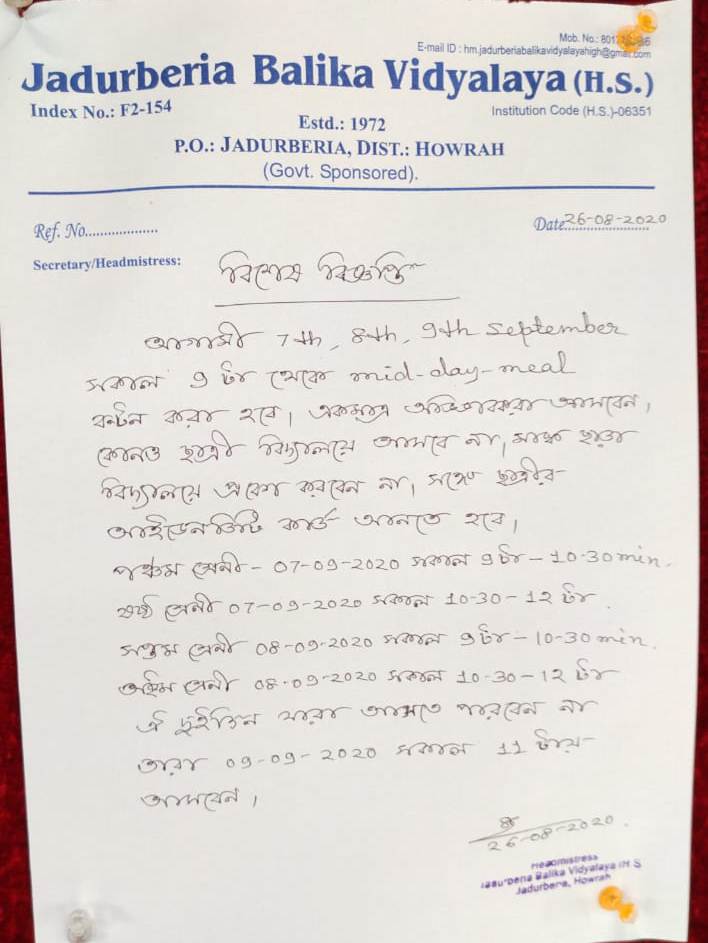 Mob. No.: 801
E-mail ID : hm.jadurberiabalikavidyalayahigh@gmail.com
Jadurberia Balika Vidyalaya (H.S.)
Index No.: F2-154
Institution Code (H.S.)-06351
Estd.: 1972
P.O.: JADURBERIA, DIST.: HOWRAH
(Govt. Sponsored).
Ref. No...................
Date 26-08-2020
Secretary/Headmistress:
বিশেষ বিজ্ঞপ্তি
আগামী 7th, 8th, 9th September
সকাল 9 টা থেকে mid-day-meal
বন্টন করা হবে। একমাত্র অভিভাবকরা আসবেন,
কোনও ছাত্রী বিদ্যালয়ে আসবে না, মাস্ক ছাড়া
বিদ্যালয়ে প্রবেশ করবেন না, সঙ্গে ছাত্রীর
আইডেনটিটি কার্ড আনতে হবে,
পঞ্চম শ্রেনী - 07-09-2020 সকাল 9 টা - 10-30 min.
ষষ্ঠ শ্রেনী 07-09-2020 সকাল 10-30 - 12 টা.
সপ্তম শ্রেনী 08-09-2020 সকাল 9 টা - 10-30 min.
অষ্টম শ্রেনী 08-09-2020 সকাল 10-30 - 12 টা
ঐ দুইদিন যারা আসতে পারবেন না
তারা 09-09-2020 সকাল 11 টায়
আসবেন।
26-08-2020.
Headmistress
Jadurberia Balika Vidyalaya (H.S
Jadurberia, Howrah